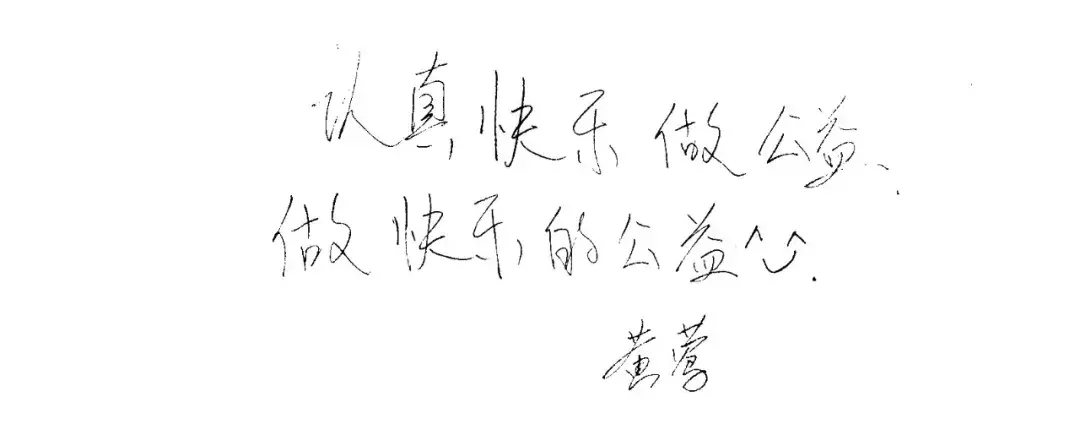 认真快乐做公益、
做快乐的公益^◡^.
黄莺